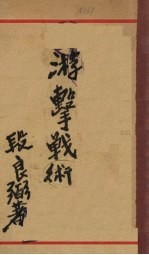 游擊戰術
段良弼著